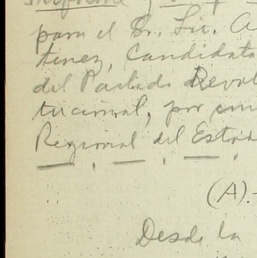 para el Sr. Lic. A
tinez, Candidato
del Partido Revol
tucional, por
Regional del Estad
(A).-
Desde la